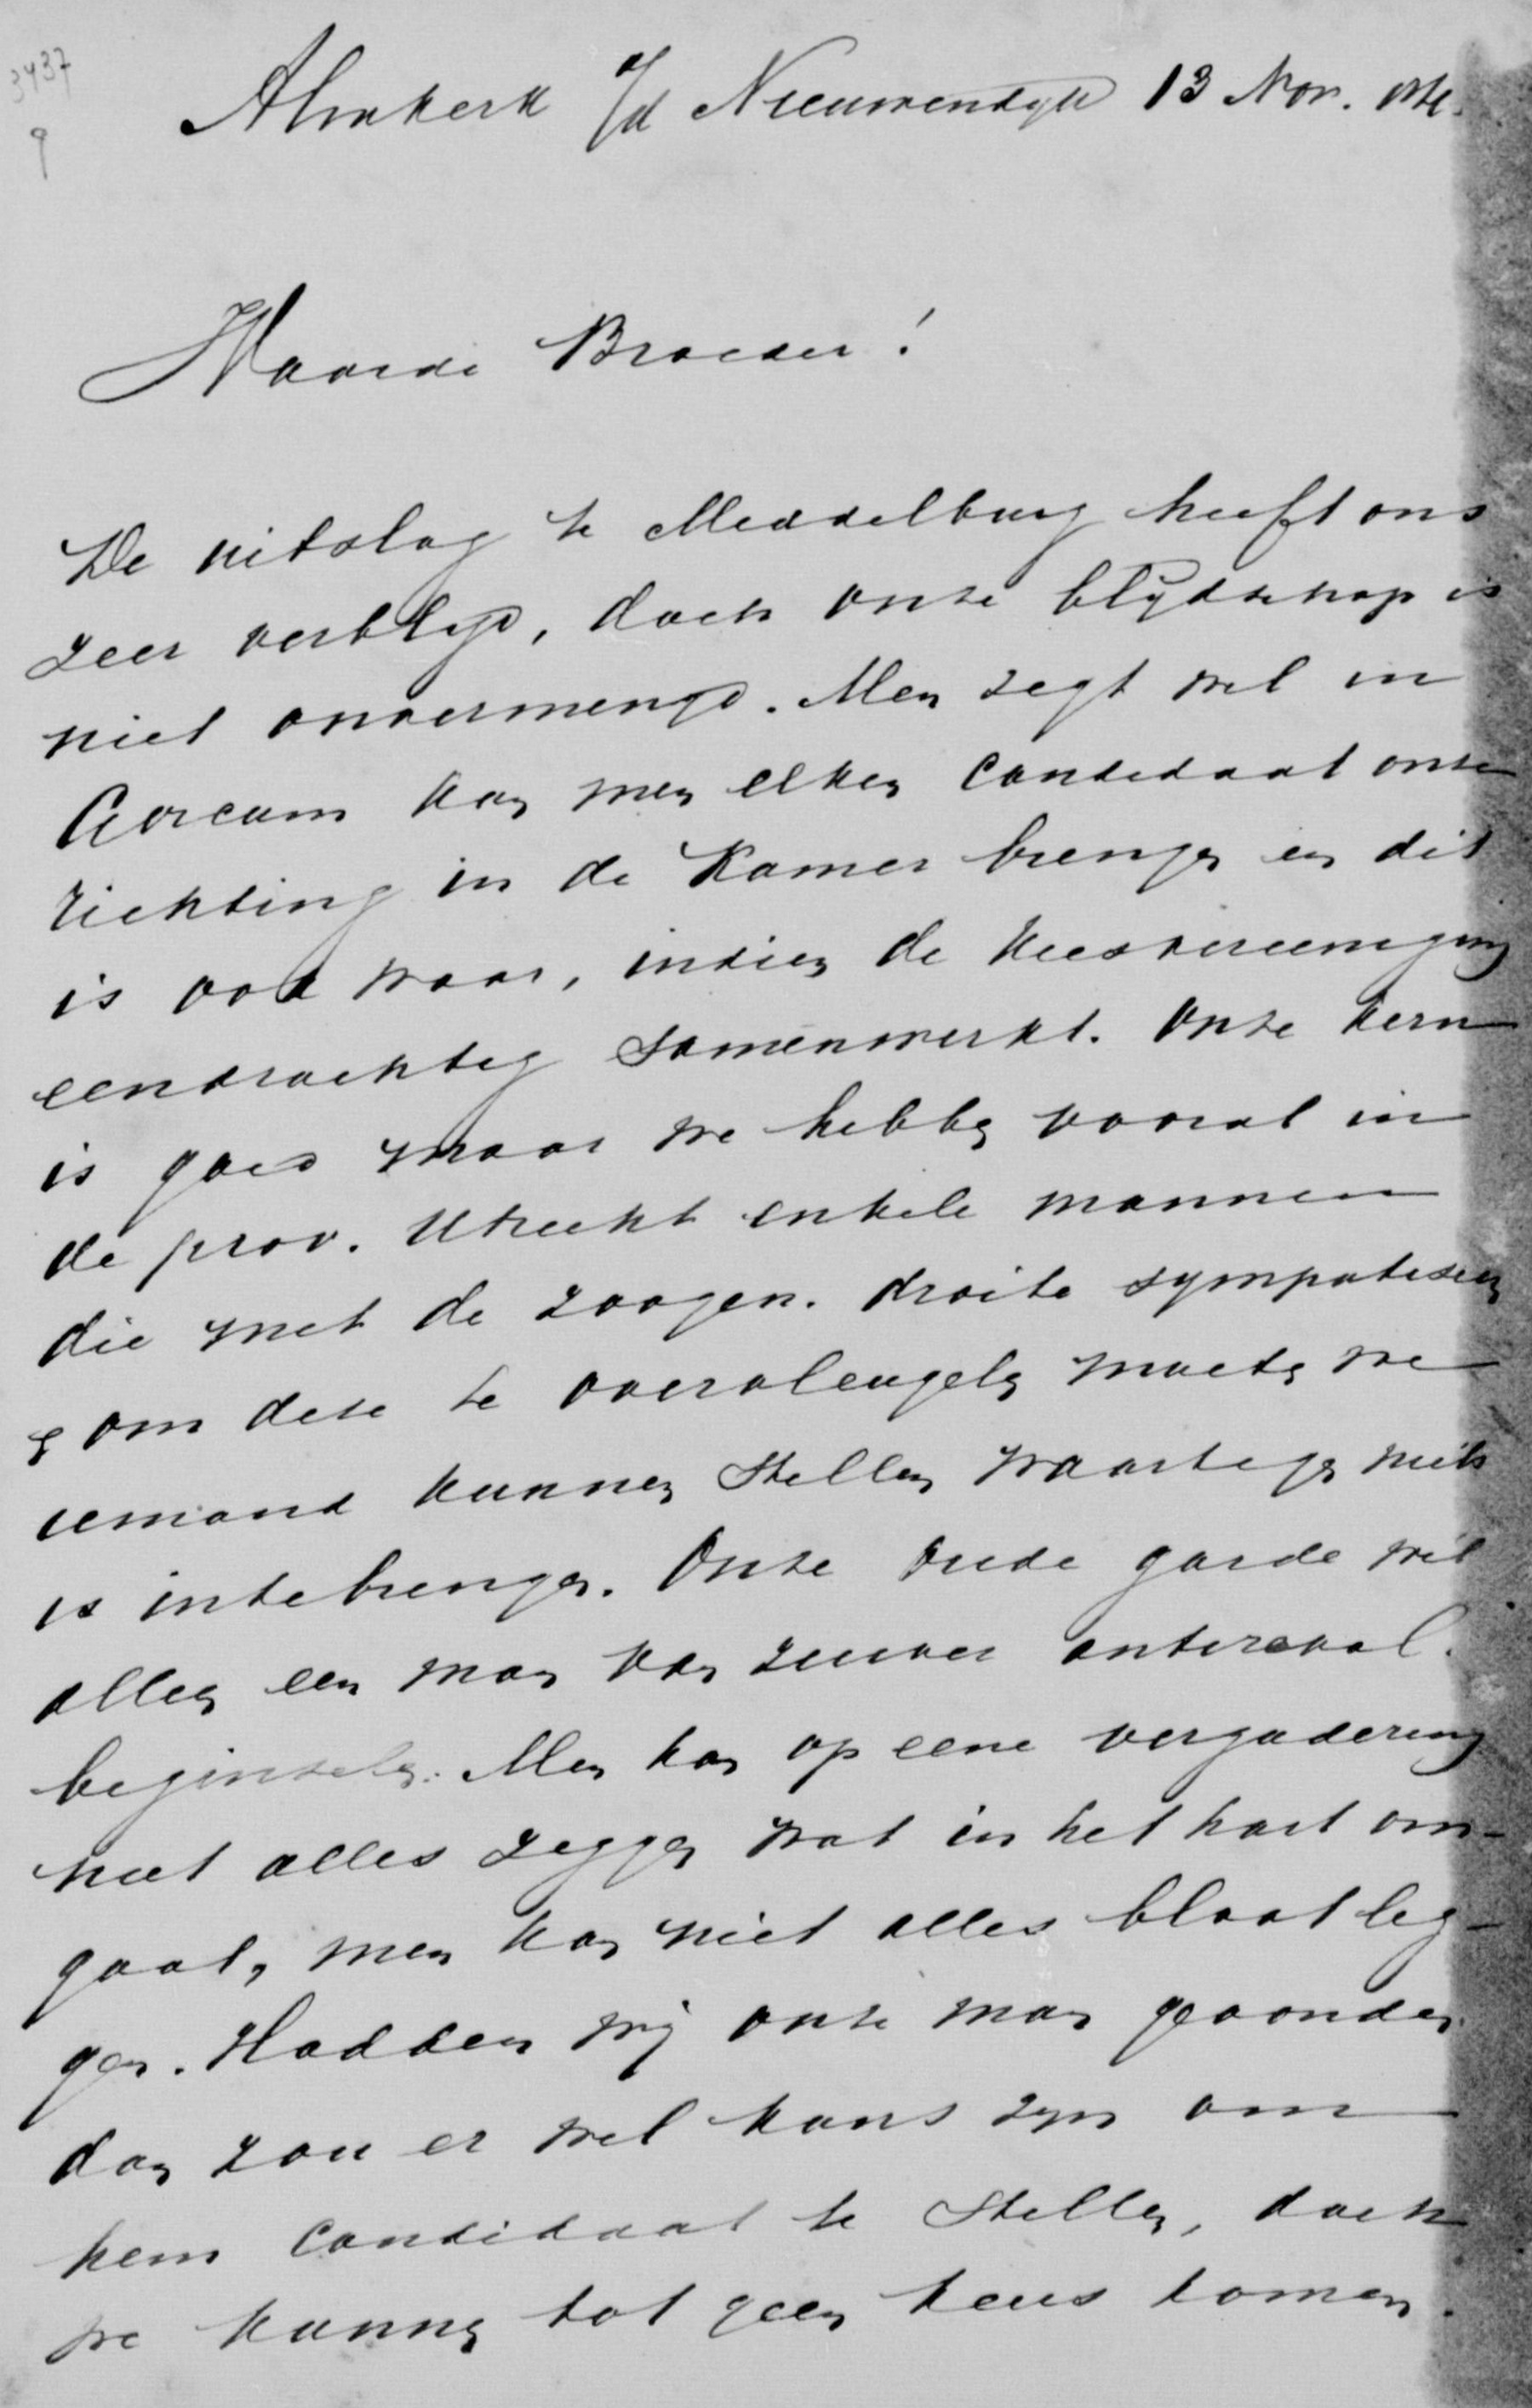 3437
9
Almkerk a/d Nieuwendyk 13 Nov.
Waarde Broeder!
De uitslag te Middelburg heeft ons
zeer verblyd, doch onze blydschap is
niet onvermengd. Men zegt wel in
Gorcum kan men elken candidaat onzer
richting in de Kamer brengen en dit
is ook waar, indien de Kiesvereeniging
eendrachtig samenwerkt. Onze kern
is goed maar we hebben vooral in
de prov. Utrecht enkele mannen
die met de zoogen. droite sympatiseren
en om deze te overvleugelen moeten we
iemand kunnen stellen waartegen niets
is intebrengen. Onze oude garde wil
alleen een man van zuiver antirevol.
beginselen. Men kan op eene vergadering
niet alles zeggen wat in het hart om-
gaat, men kan niet alles bloot leg-
gen. Hadden wij onze man gevonden
dan zou er wel kans zyn om
hem candidaat te stellen, doch
we kunnen tot geen keus komen.